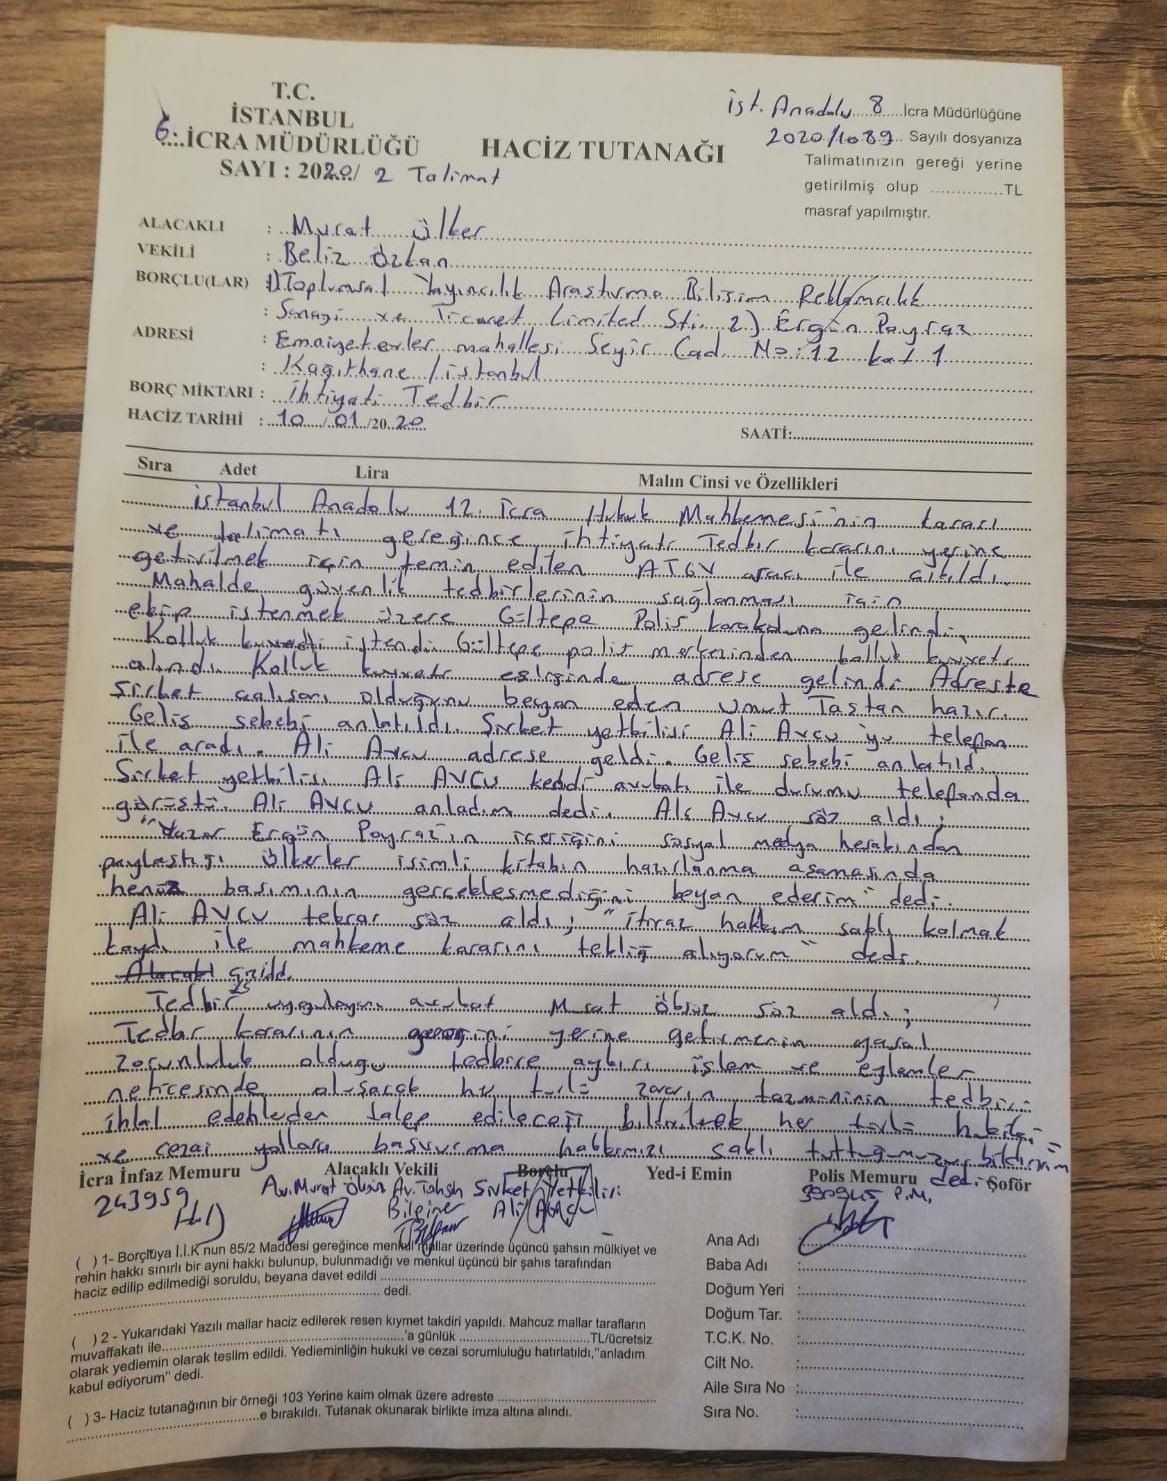 T.C.
İSTANBUL
6. İCRA MÜDÜRLÜĞÜ
SAYI : 2020/ 2 Talimat
HACİZ TUTANAĞI
İst. Anadolu 8 İcra Müdürlüğüne
2020/1089 Sayılı dosyanıza
Talimatınızın gereği yerine
getirilmiş olup ..............TL
masraf yapılmıştır.
ALACAKLI : Murat Ülker
VEKİLİ : Beliz Özkan
BORÇLU(LAR) 1) Toplumsal Yayıncılık Araştırma Bilişim Reklamcılık
: Sanayi ve Ticaret Limited Şti. 2) Ergün Poyraz
ADRESİ : Emniyetevler mahallesi Seyir Cad. No:12 kat 1
: Kağıthane / istanbul
BORÇ MİKTARI : İhtiyati Tedbir
HACİZ TARİHİ : 10 /01 /20 20
SAATİ:
Sıra Adet Lira Malın Cinsi ve Özellikleri
istanbul Anadolu 12. icra Hukuk Mahkemesi'nin kararı
ve talimatı gereğince ihtiyati Tedbir kararını yerine
getirilmek için temin edilen ATGV aracı ile çıkıldı.
Mahalde güvenlik tedbirlerinin sağlanması için
ekip istenmek üzere Gültepe Polis karakoluna gelindi.
Kolluk kuvveti istendi Gültepe polis merkezinden kolluk kuvveti
alındı. Kolluk kuvveti eşliğinde adrese gelindi Adreste
Şirket çalışanı olduğunu beyan eden Umut Taştan hazır.
Geliş sebebi anlatıldı. Şirket yetkilisi Ali Avcu'yu telefon
ile aradı. Ali Avcu adrese geldi. Geliş sebebi anlatıldı.
Şirket yetkilisi Ali AVCU kendi avukatı ile durumu telefonda
görüştü. Ali AVCU anladım dedi. Ali Avcu söz aldı;
"Yazar Ergün Poyraz'ın içeriğini sosyal medya hesabından
paylaştığı Ülkerler isimli kitabın hazırlanma aşamasında
henüz basımının gerçekleşmediğini beyan ederim" dedi.
Ali AVCU tekrar söz aldı; "itiraz hakkım saklı kalmak
kaydı ile mahkeme kararını tebliğ alıyorum" dedi.
Tedbir uygulayan avukat Murat söz aldı;
Tedbir kararının gereğini yerine getirmenin yasal
zorunluluk olduğu tedbire aykırı işlem ve eylemler
neticesinde oluşacak her türlü zararın tazmininin tedbiri
ihlal edenlerden talep edileceği bildirilerek her türlü hukuki
ve cezai yollara başvurma hakkımızı saklı tuttuğumuzu bildiririm
dedi.
İcra İnfaz Memuru Alacaklı Vekili Borçlu Yed-i Emin Polis Memuru Şoför
243959
Av. Murat
Av.
Bilginer
Şirket Yetkilisi
Ali Avcu
P.M.
( )1- Borçluya İ.İ.K nun 85/2 Maddesi gereğince menkul mallar üzerinde üçüncü şahsın mülkiyet ve
rehin hakkı sınırlı bir ayni hakkı bulunup, bulunmadığı ve menkul üçüncü bir şahıs tarafından
haciz edilip edilmediği soruldu, beyana davet edildi
dedi.
( )2 - Yukarıdaki Yazılı mallar haciz edilerek resen kıymet takdiri yapıldı. Mahcuz mallar tarafların
muvaffakati ile..........'a günlük ..........TL/ücretsiz
olarak yediemin olarak teslim edildi. Yedieminliğin hukuki ve cezai sorumluluğu hatırlatıldı,"anladım
kabul ediyorum" dedi.
( )3- Haciz tutanağının bir örneği 103 Yerine kaim olmak üzere adreste
e bırakıldı. Tutanak okunarak birlikte imza altına alındı.
Ana Adı :
Baba Adı :
Doğum Yeri :
Doğum Tar. :
T.C.K. No. :
Cilt No. :
Aile Sıra No :
Sıra No. :